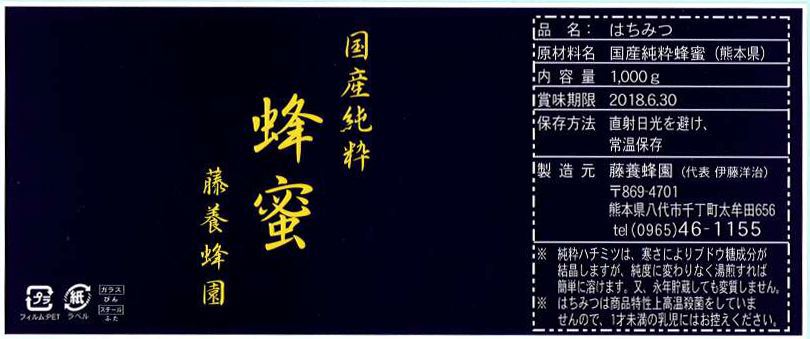 国産純粋
蜂蜜
藤養蜂園
プラ
フィルム:PET
紙
ラベル
ガラス
びん
スチール
ふた
品 名: はちみつ
原材料名 国産純粋蜂蜜 (熊本県)
内容量 1,000g
賞味期限 2018.6.30
保存方法 直射日光を避け、
常温保存
製造元 藤養蜂園 (代表 伊藤洋治)
〒869-4701
熊本県八代市千丁町太牟田656
tel (0965)46-1155
※ 純粋ハチミツは、寒さによりブドウ糖成分が
結晶しますが、純度に変わりなく湯煎すれば
簡単に溶けます。又、永年貯蔵しても変質しません。
※ はちみつは商品特性上高温殺菌をしていま
せんので、1才未満の乳児にはお控えください。